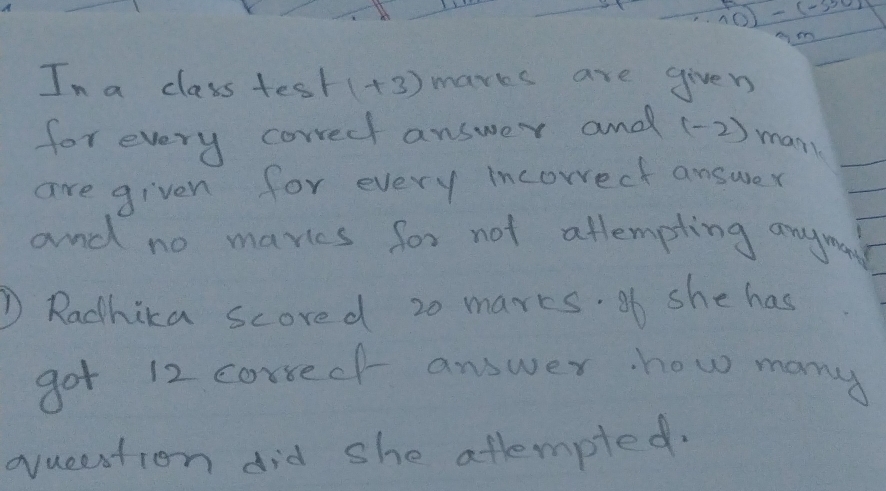 10) - (-550)
In a class test (+3) marks are given
for every correct answer and (-2) mark
are given for every incorrect answer
and no marks for not attempting any
1) Radhika scored 20 marks. If she has
got 12 correct answer. how many
queestion did she attempted.